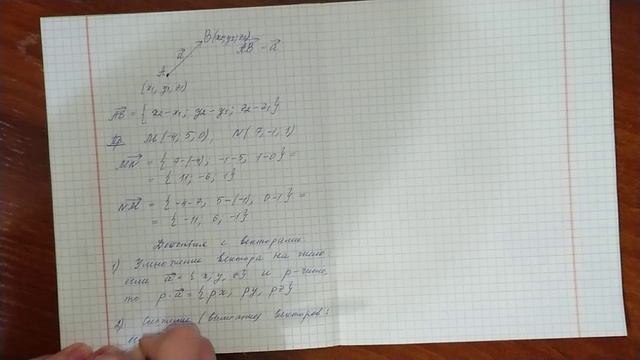 B(x₂, y₂, z₂)
a⃗
AB⃗ - a⃗
A
(x₁, y₁, z₁)
AB⃗ = { x₂-x₁; y₂-y₁; z₂-z₁}
Пр M(-4, 5, 0), N(7, -1, 1)
MN⃗ = { 7-(-4); -1-5, 1-0} =
= { 11; -6; 1}
NM⃗ = { -4-7, 5-(-1), 0-1} =
= { -11, 6, -1}
Действия с векторами.
1) Умножение вектора на число
если a⃗ = { x; y, z} и p-число,
то p·a⃗ = { px; py, pz}
2) Сложение (вычитание) векторов: